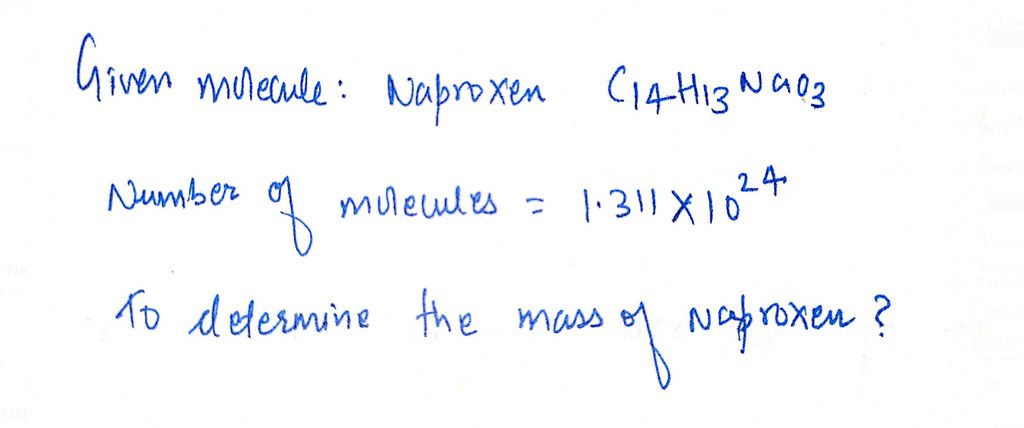 Given molecule: Naproxen C14H13NaO3
Number of molecules = 1.311 X 10^24
To determine the mass of Naproxen ?